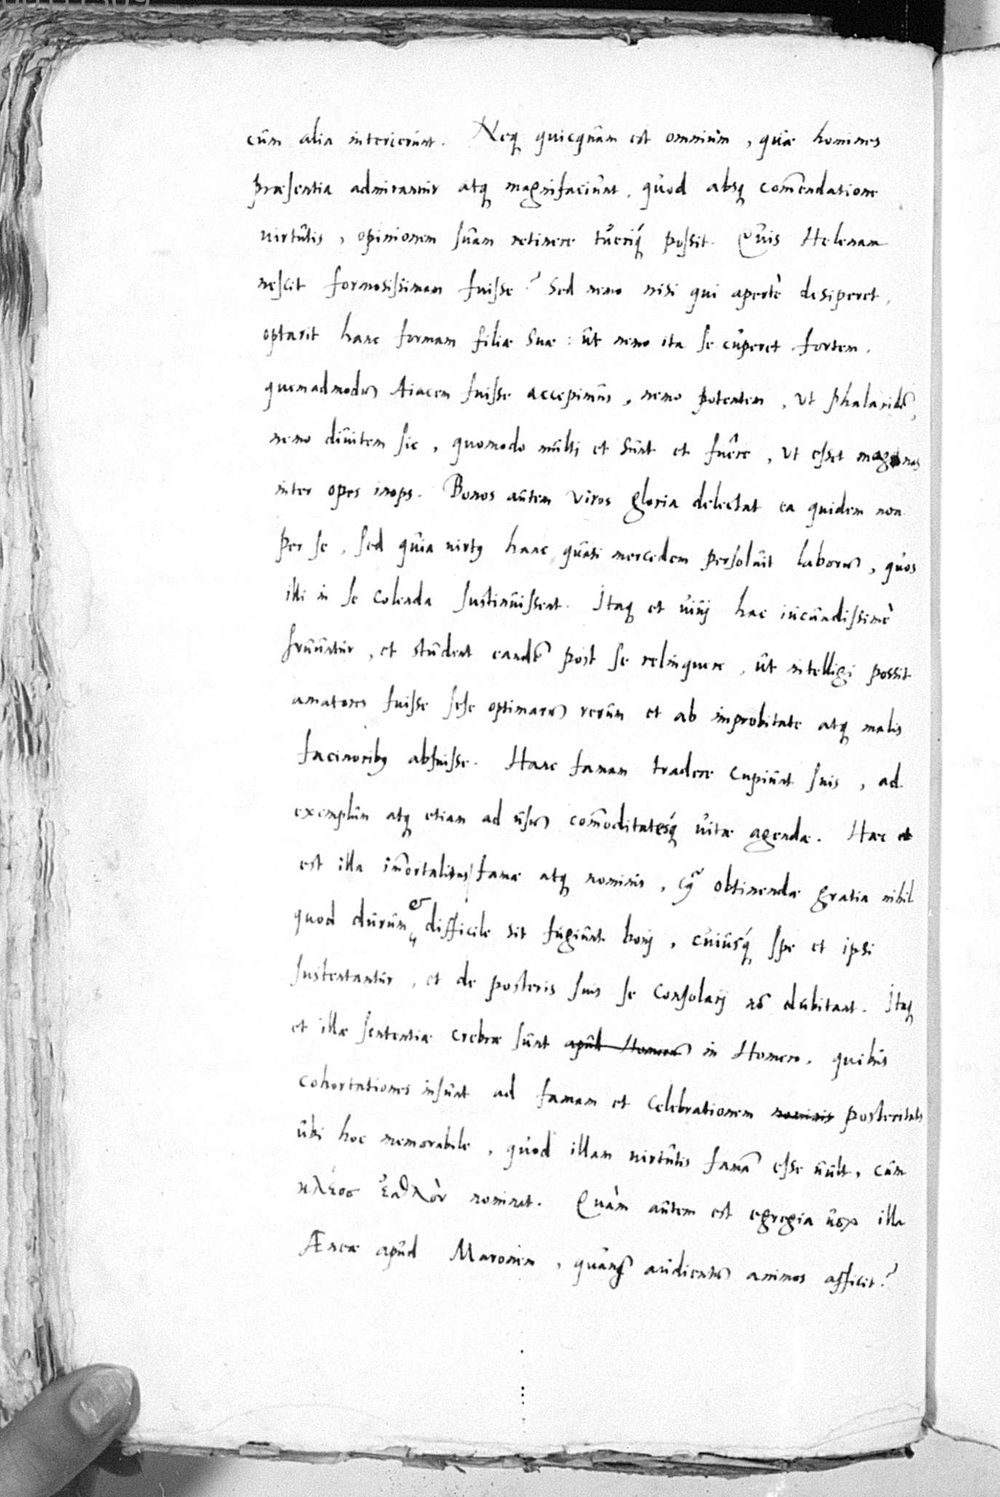 cûm alia intercerint. Neq quicquâm est omniûm, quæ homines
præsentia admirantur atq magnifaciûnt, quod absq comẽndatione
virtûtis, opinionem sûam retinere tûeriq́ possit. Quis Helenam
nescit formosissimam fuisse? Sed nemo nisi qui apertè desiperet,
optarit hanc formam filiæ suæ: ût nemo ita se cûperet fortem,
quemadmodũ Aiacem fuisse accepimûs, nemo potentem, ut phalaridẽ,
nemo diûitem sic, quomodo mûlti et sûnt et fuêre, ut esset magnas
inter opes inops. Bonos aûtem viros gloria delectat ea quidem non
per se, sed quia virtꝰ hanc quasi mercedem persolûit laborũ, quos
illi in se colenda sustinûissent. Itaq et uiuj hac iûcûndissimè
fruûntûr, et stûdent eandẽ post se relinquere, ût intelligi possit
amatores fuisse sese optimarũ rerûm et ab improbitate atq malis
facinoribꝰ abfuisse. Hanc famam tradere cupiûnt suis, ad
exemplûm atq etiam ad ûsũ com̃oditatesq́ uitæ agendæ. Hæc
est illa im̃ortalitas famæ atq nominis, cꝰ obtinendæ gratia nihil
quod dûrûm et difficile sit fûgiûnt bonj, cûiûsq́ spe et ipsi
sustentantûr, et de posteris suis se consolarj nõ dubitant. Itaq
et illæ sententiæ crebræ sûnt apûd Homerũ in Homero, quibûs
cohortationes insûnt ad famam et celebrationem nominis posteritatis
ûbi hoc memorabile, quod illam virtûtis famã esse uûlt, cûm
κλέος ἐσθλὸν nominat. Quàm aûtem est egregia ûox illa
Æneæ apûd Maronem, quæ audientiũ animos afficit?